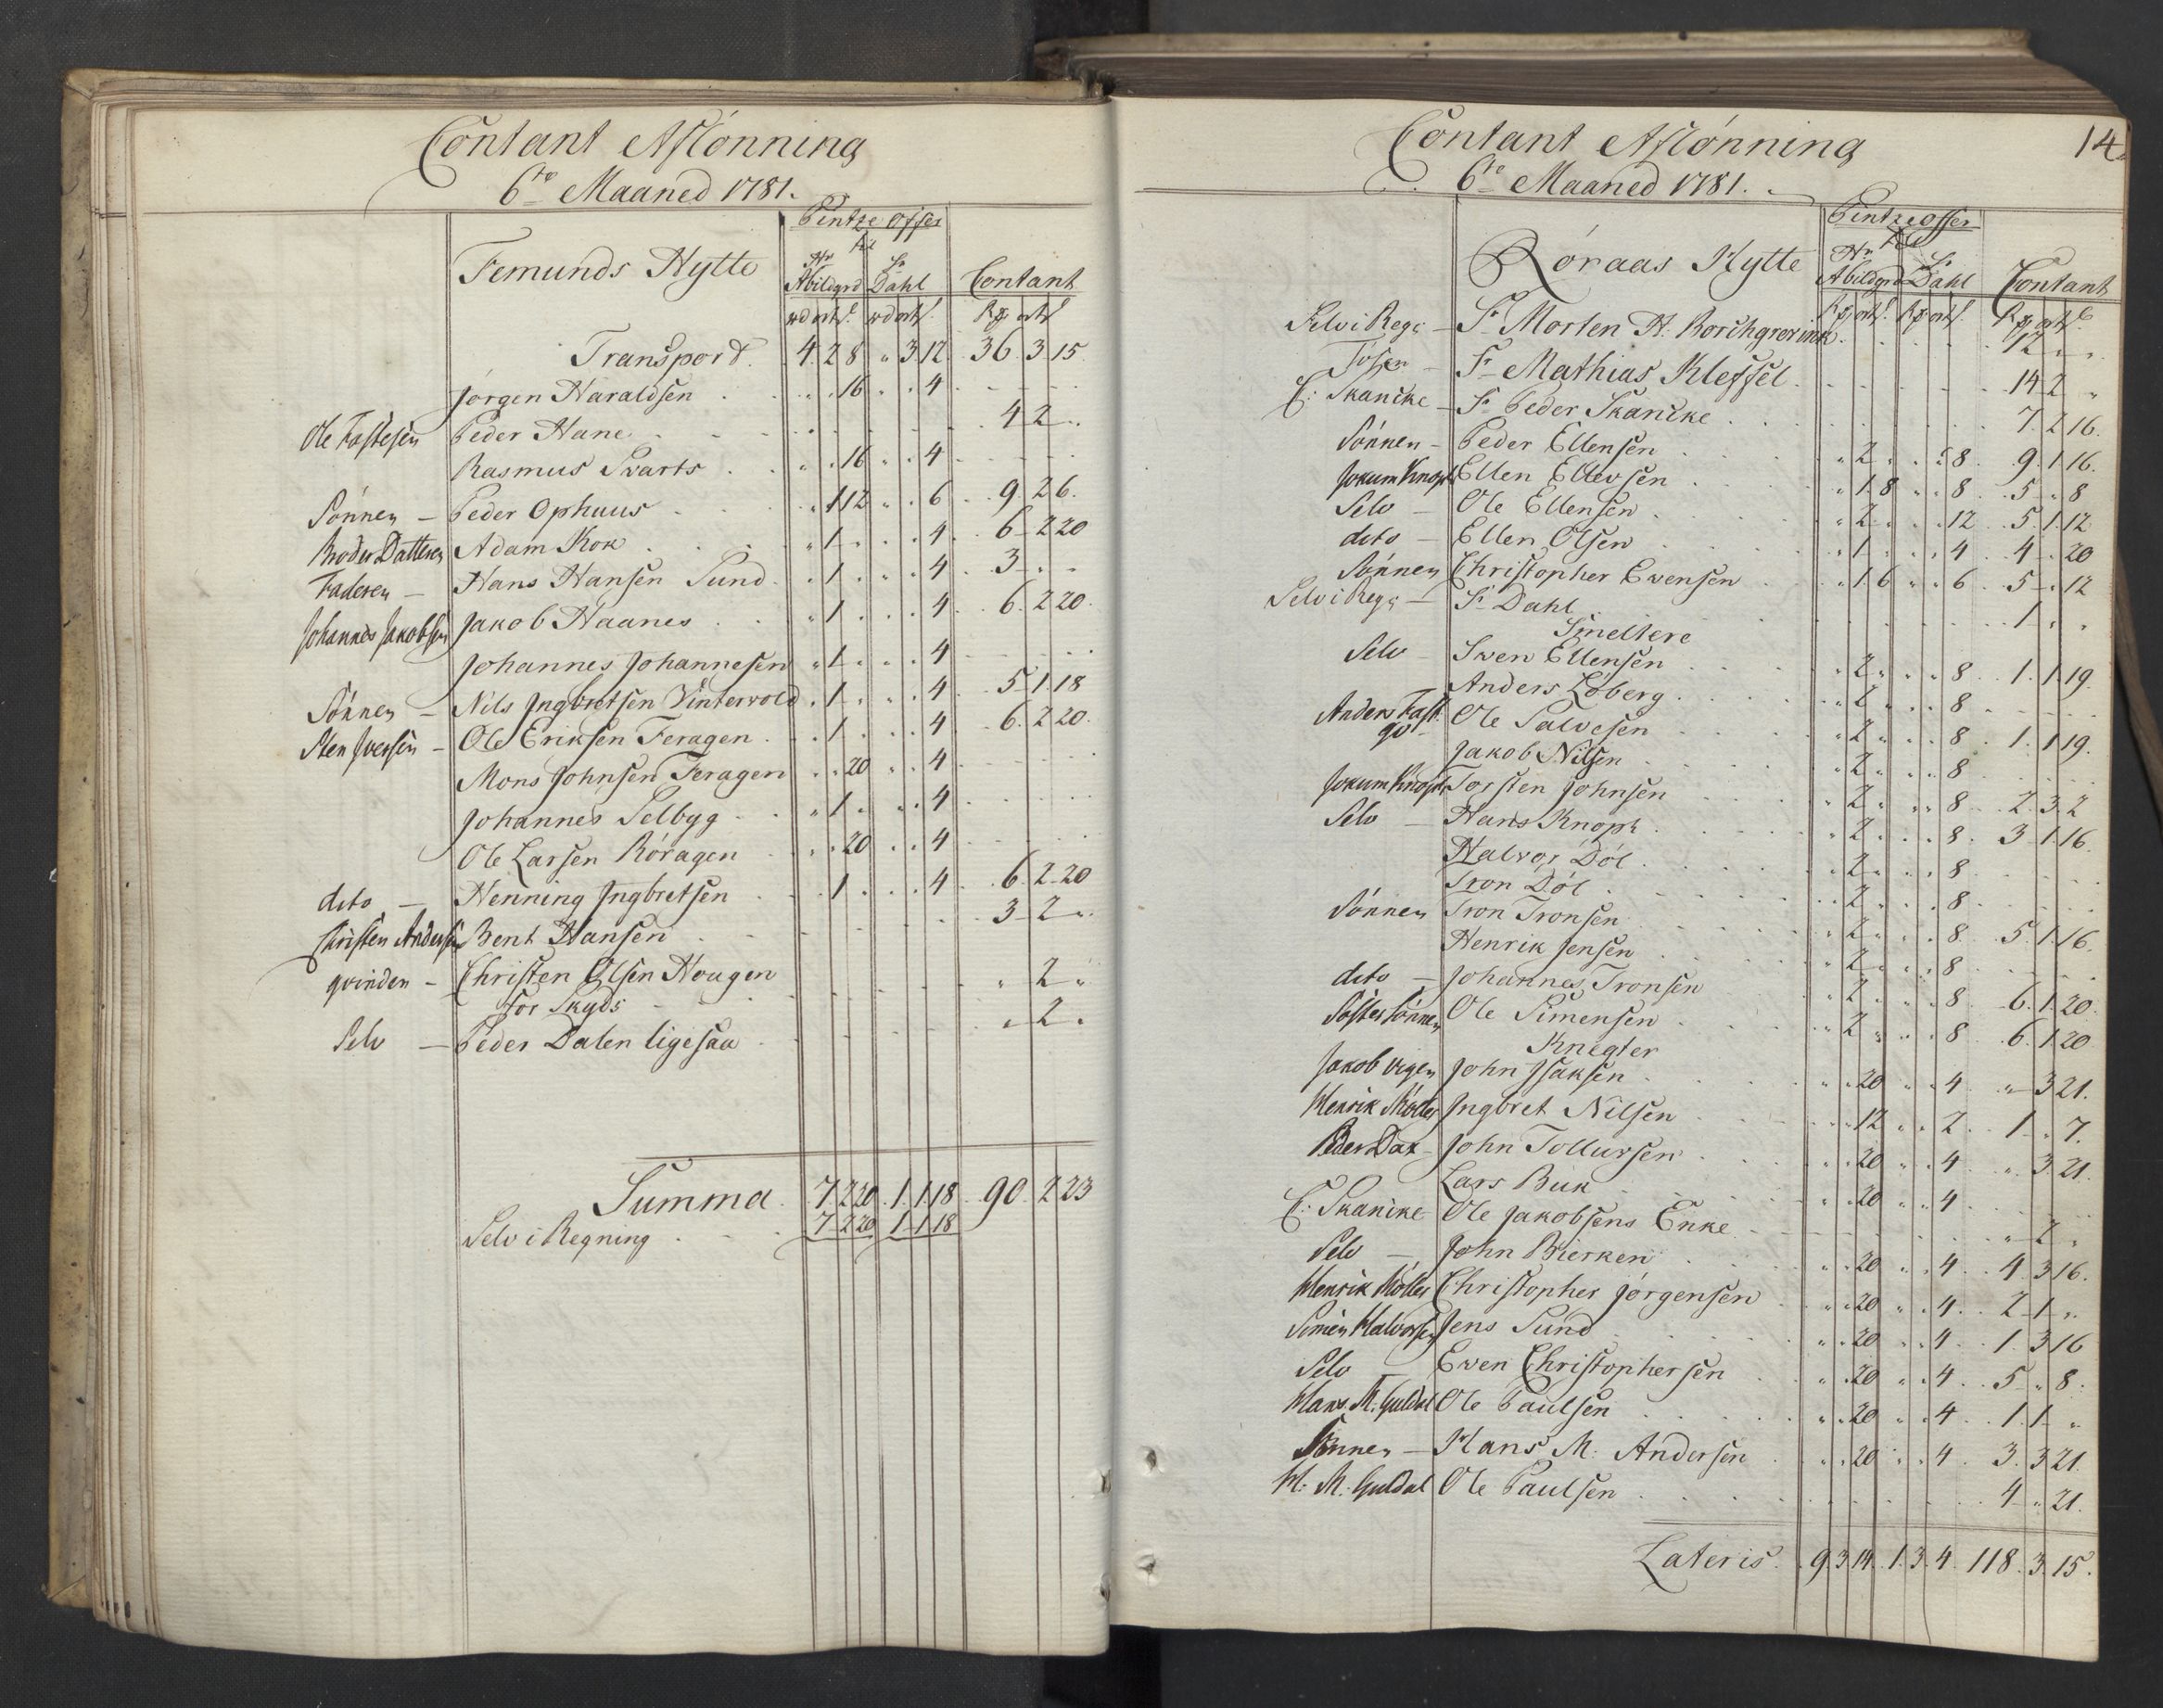 Contant Aflönning
6te Maaned 1781.
Femunds Hytte
Pintze Offer
til
Hr Abildgrd
Sr Dahl
Contant
rd ort s. rd ort s. Rd ort s
Transport. 4. 2 8 „ 3 12 36. 3 15.
Jörgen Haraldsen . . 16 . . 4
Ole Fastesen Peder Hane 4 2 ..
Rasmus Svarts „ . 16 „ . 4
Sönnen — Peder Ophuus „ 1 12 „ . 6 9. 2 6.
Broder Datteren Adam Kok „ 1 . . . 4 6. 2 20
Faderen — Hans Hansen Sund . 1 . . . 4 3 . .
Johannes Jakobsen Jakob Haanes „ 1 . . . 4 6. 2 20.
Johannes Johannesen „ 1 . . . 4
Sönnen — Nils Jngbretsen Vintervold . 1 . . . 4 5. 1 18
Sten Jversen — Ole Eriksen Feragen . . 1 . . . 4 6. 2 20.
Mons Johnsen Feragen . . 20 . . 4
Johannes Selbyg „ 1 . . . 4
Ole Larsen Röragen . . 20 . . 4
dito — Henning Jngbretsen . 1 . . . 4 6. 2 20
Christen Andersen Bent Hansen 3 2 „
qvinden — Christen Olsen Hougen
for Skyds „ 2 „
Selv — Peder Dalen ligesaa „ 2 .
Summa. 7. 2 20. 1. 1 18. 90. 2 23
Selv i Regning 7. 2 20 1. 1 18
14.
Contant Aflönning
6te Maaned 1781.
Röraas Hytte
Pintze Offer
til
Hr Abildgrd
Sr Dahl
Contant
Rd ort s. Rd ort s. Rd ort s.
Selv i Regg — Sr Morten H: Borchgrevink 12 „ „
Sr Mathias Kleffel 14 2 „
E: Skancke — Sr Peder Skancke 7. 2 16.
Sönnen — Peder Ellensen „ 2 „ . . 8 9. 1 16.
Jokum Knoph Ellen Ellevsen „ 1 8 „ . 8 5 „ 8
Selv — Ole Ellensen „ 2 „ . . 12 5. 1 12
dito — Ellen Olsen „ 1 „ . . 4 4 . 20
Sönnen Christopher Evensen „ 1 6 „ . 6 5 . 12
Selv i Regg — Sr Dahl 1 „ „
Smeltere
Selv — Sven Ellensen „ 2 „ „ „ 8 1. 1 19.
Anders Löberg „ 2 „ . . 8
Anders Fast: Ole Salvesen „ 2 „ . . 8 1. 1 19.
Jakob Nilsen „ 2 „ . . 8
Jokum Knoph Torsten Johnsen „ 2 „ „ „ 8 2. 3 2
Selv — Hans Knoph „ 2 . . . 8 3 1 16.
Halvor Döl . 2 „ . . 8
Tron Döl . 2 . . . 8
Sönnen Tron Tronsen „ 2 „ . . 8 5. 1 16.
Henrik Jensen „ 2 „ . . 8
dito — Johannes Tronsen „ 2 „ . „ 8 6. 1 20.
Söster Sönnen Ole Simensen „ 2 „ . . 8 6. 1 20
Knegter
John Jsaksen „ . 20 „ . 4 „ 3 21.
Henrik Möller Jngbret Nilsen . . 12 „ . 2 1 „ 7.
Peder Dax John Tollursen „ . 20 „ . 4 „ 3 21.
Lars Buk „ . 20 „ . 4
E: Skancke Ole Jakobsens Enke „ 2 „
Selv — John Bierken „ . 20 „ . 4 4. 3 16.
Henrik Möller Christopher Jörgensen „ . 20 „ . 4 2 1 „
Simen Halvorsen Jens Sund „ . 20 „ . 4 1. 3 16
Selv — Even Christophersen „ . 20 „ . 4 5 „ 8
Hans M. Guldal Ole Paulsen „ . 20 „ . 4 1. 1 „
Sönnen — Hans M: Andersen „ . 20 „ . 4 3. 3 21.
H: M. Guldal Ole Paulsen 4 „ 21.
Lateris. 9 3 14. 1. 3. 4. 118. 3. 15.